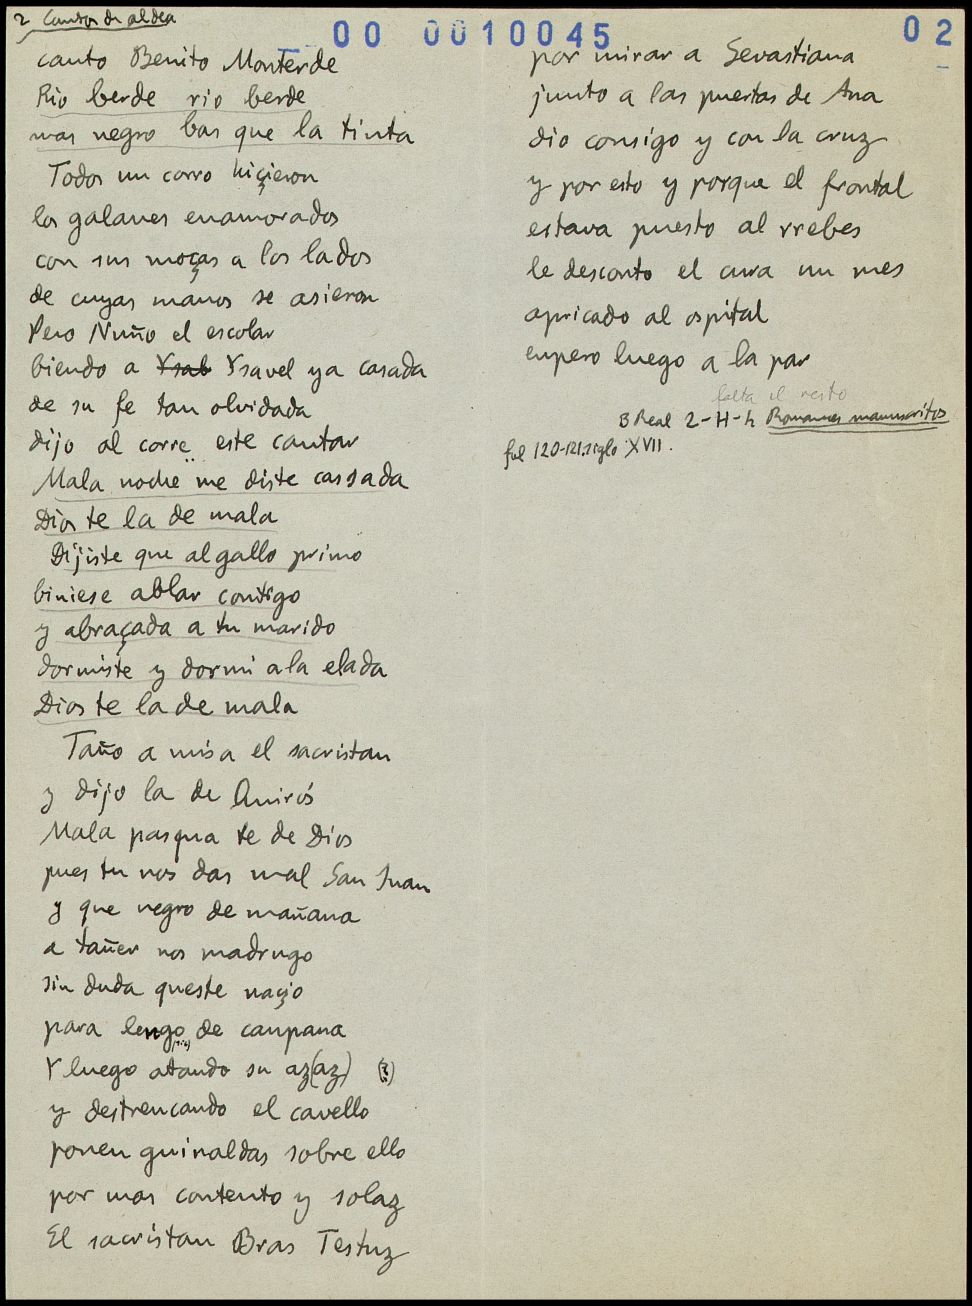 2 Cantos de aldea
00 0010045
02
canto Benito Monterde
Rio berde rio berde
mas negro bas que la tinta
Todos un corro hiçieron
los galanes enamorados
con sus moças a los lados
de cuyas manos se asieron
Pero Nuño el escolar
biendo a Ysab Ysavel ya casada
de su fe tan olvidada
dijo al corre este cantar
Mala noche me diste cassada
Dios te la de mala
Dijiste que al gallo primo
biniese ablar contigo
y abraçada a tu marido
dormiste y dormi a la elada
Dios te la de mala
Taño a misa el sacristan
y dijo la de Quirós
Mala pasqua te de Dios
pues tu nos das mal San Juan
y que negro de mañana
a tañer nos madrugo
sin duda queste naçio
para lengo de canpana
(sic)
Y luego atando su az(az) (?)
y destrençando el cavello
ponen guirnaldas sobre ello
por mas contento y solaz
El sacristan Bras Testuz
por mirar a Sevastiana
junto a las puertas de Ana
dio consigo y con la cruz
y por esto y porque el frontal
estava puesto al rrebes
le desconto el cura un mes
apricado al ospital
enpero luego a la par
falta el resto
B Real 2-H-4 Romances manuscritos
fol 120-121. siglo XVII.